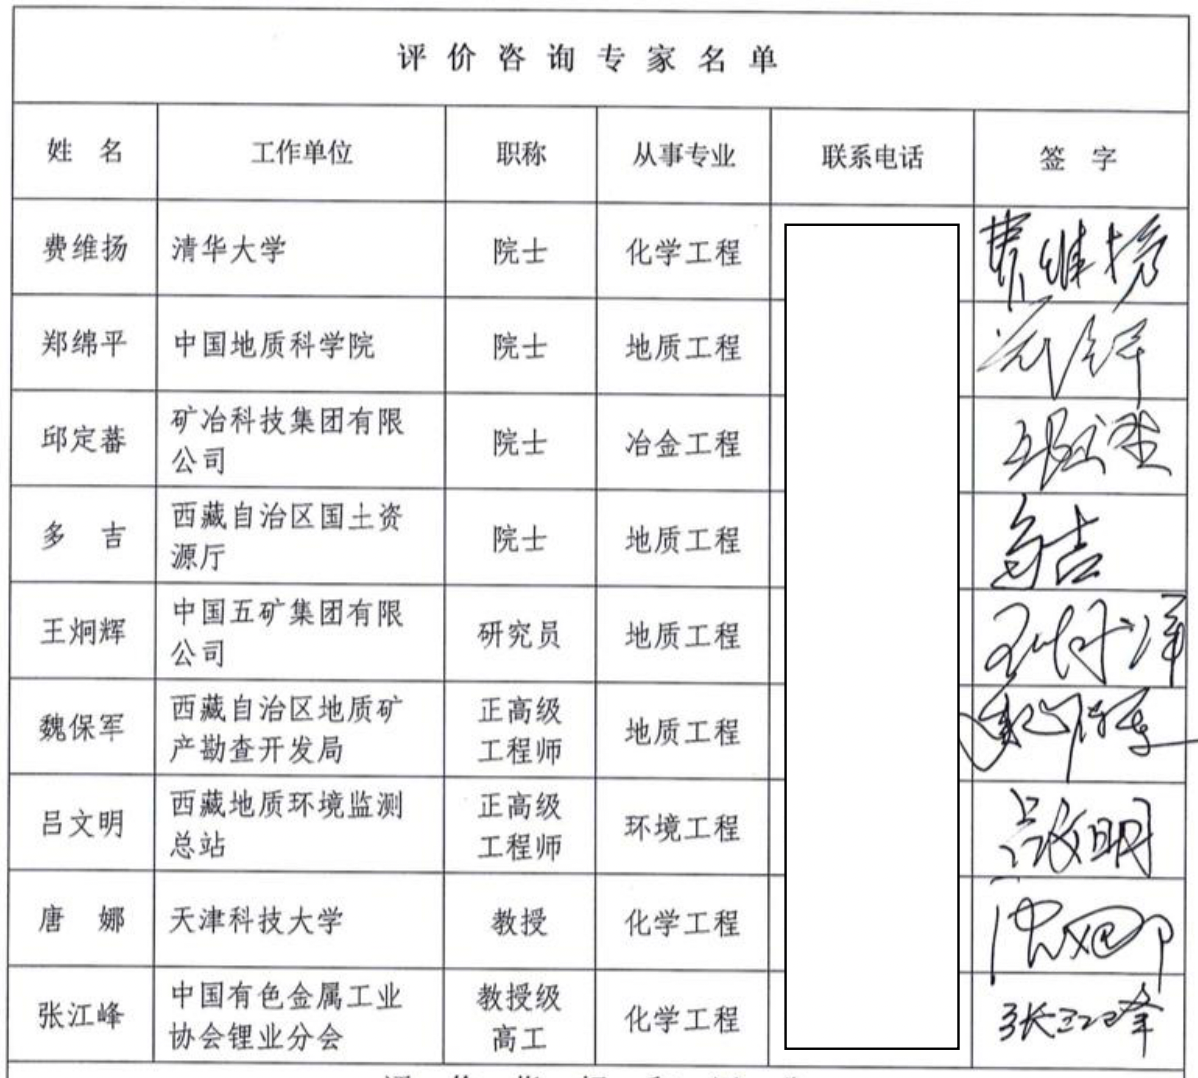 评价咨询专家名单
姓 名 工作单位 职称 从事专业 联系电话 签 字
费维扬 清华大学 院士 化学工程 费维扬
郑绵平 中国地质科学院 院士 地质工程
邱定蕃 矿冶科技集团有限
公司 院士 冶金工程
多 吉 西藏自治区国土资
源厅 院士 地质工程 多吉
王炯辉 中国五矿集团有限
公司 研究员 地质工程
魏保军 西藏自治区地质矿
产勘查开发局 正高级
工程师 地质工程
吕文明 西藏地质环境监测
总站 正高级
工程师 环境工程 吕文明
唐 娜 天津科技大学 教授 化学工程
张江峰 中国有色金属工业
协会锂业分会 教授级
高工 化学工程 张江峰